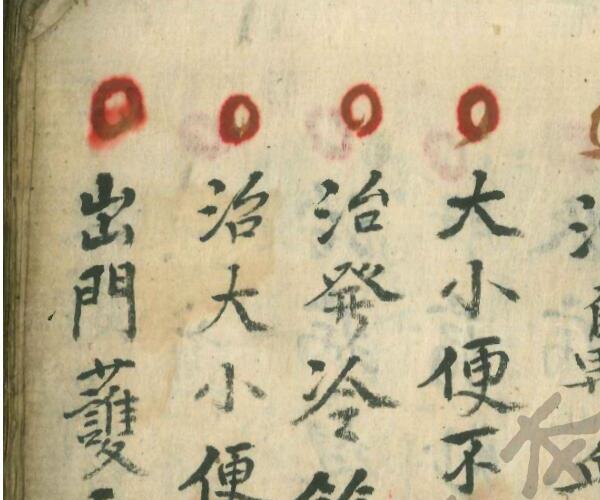 大小便不
治發冷
治大小便
出門護